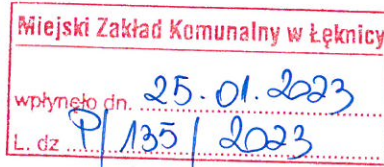 Miejski Zakład Komunalny w Łęknicy
wpłynęło dn. 25.01.2023
L. dz P/135/2023